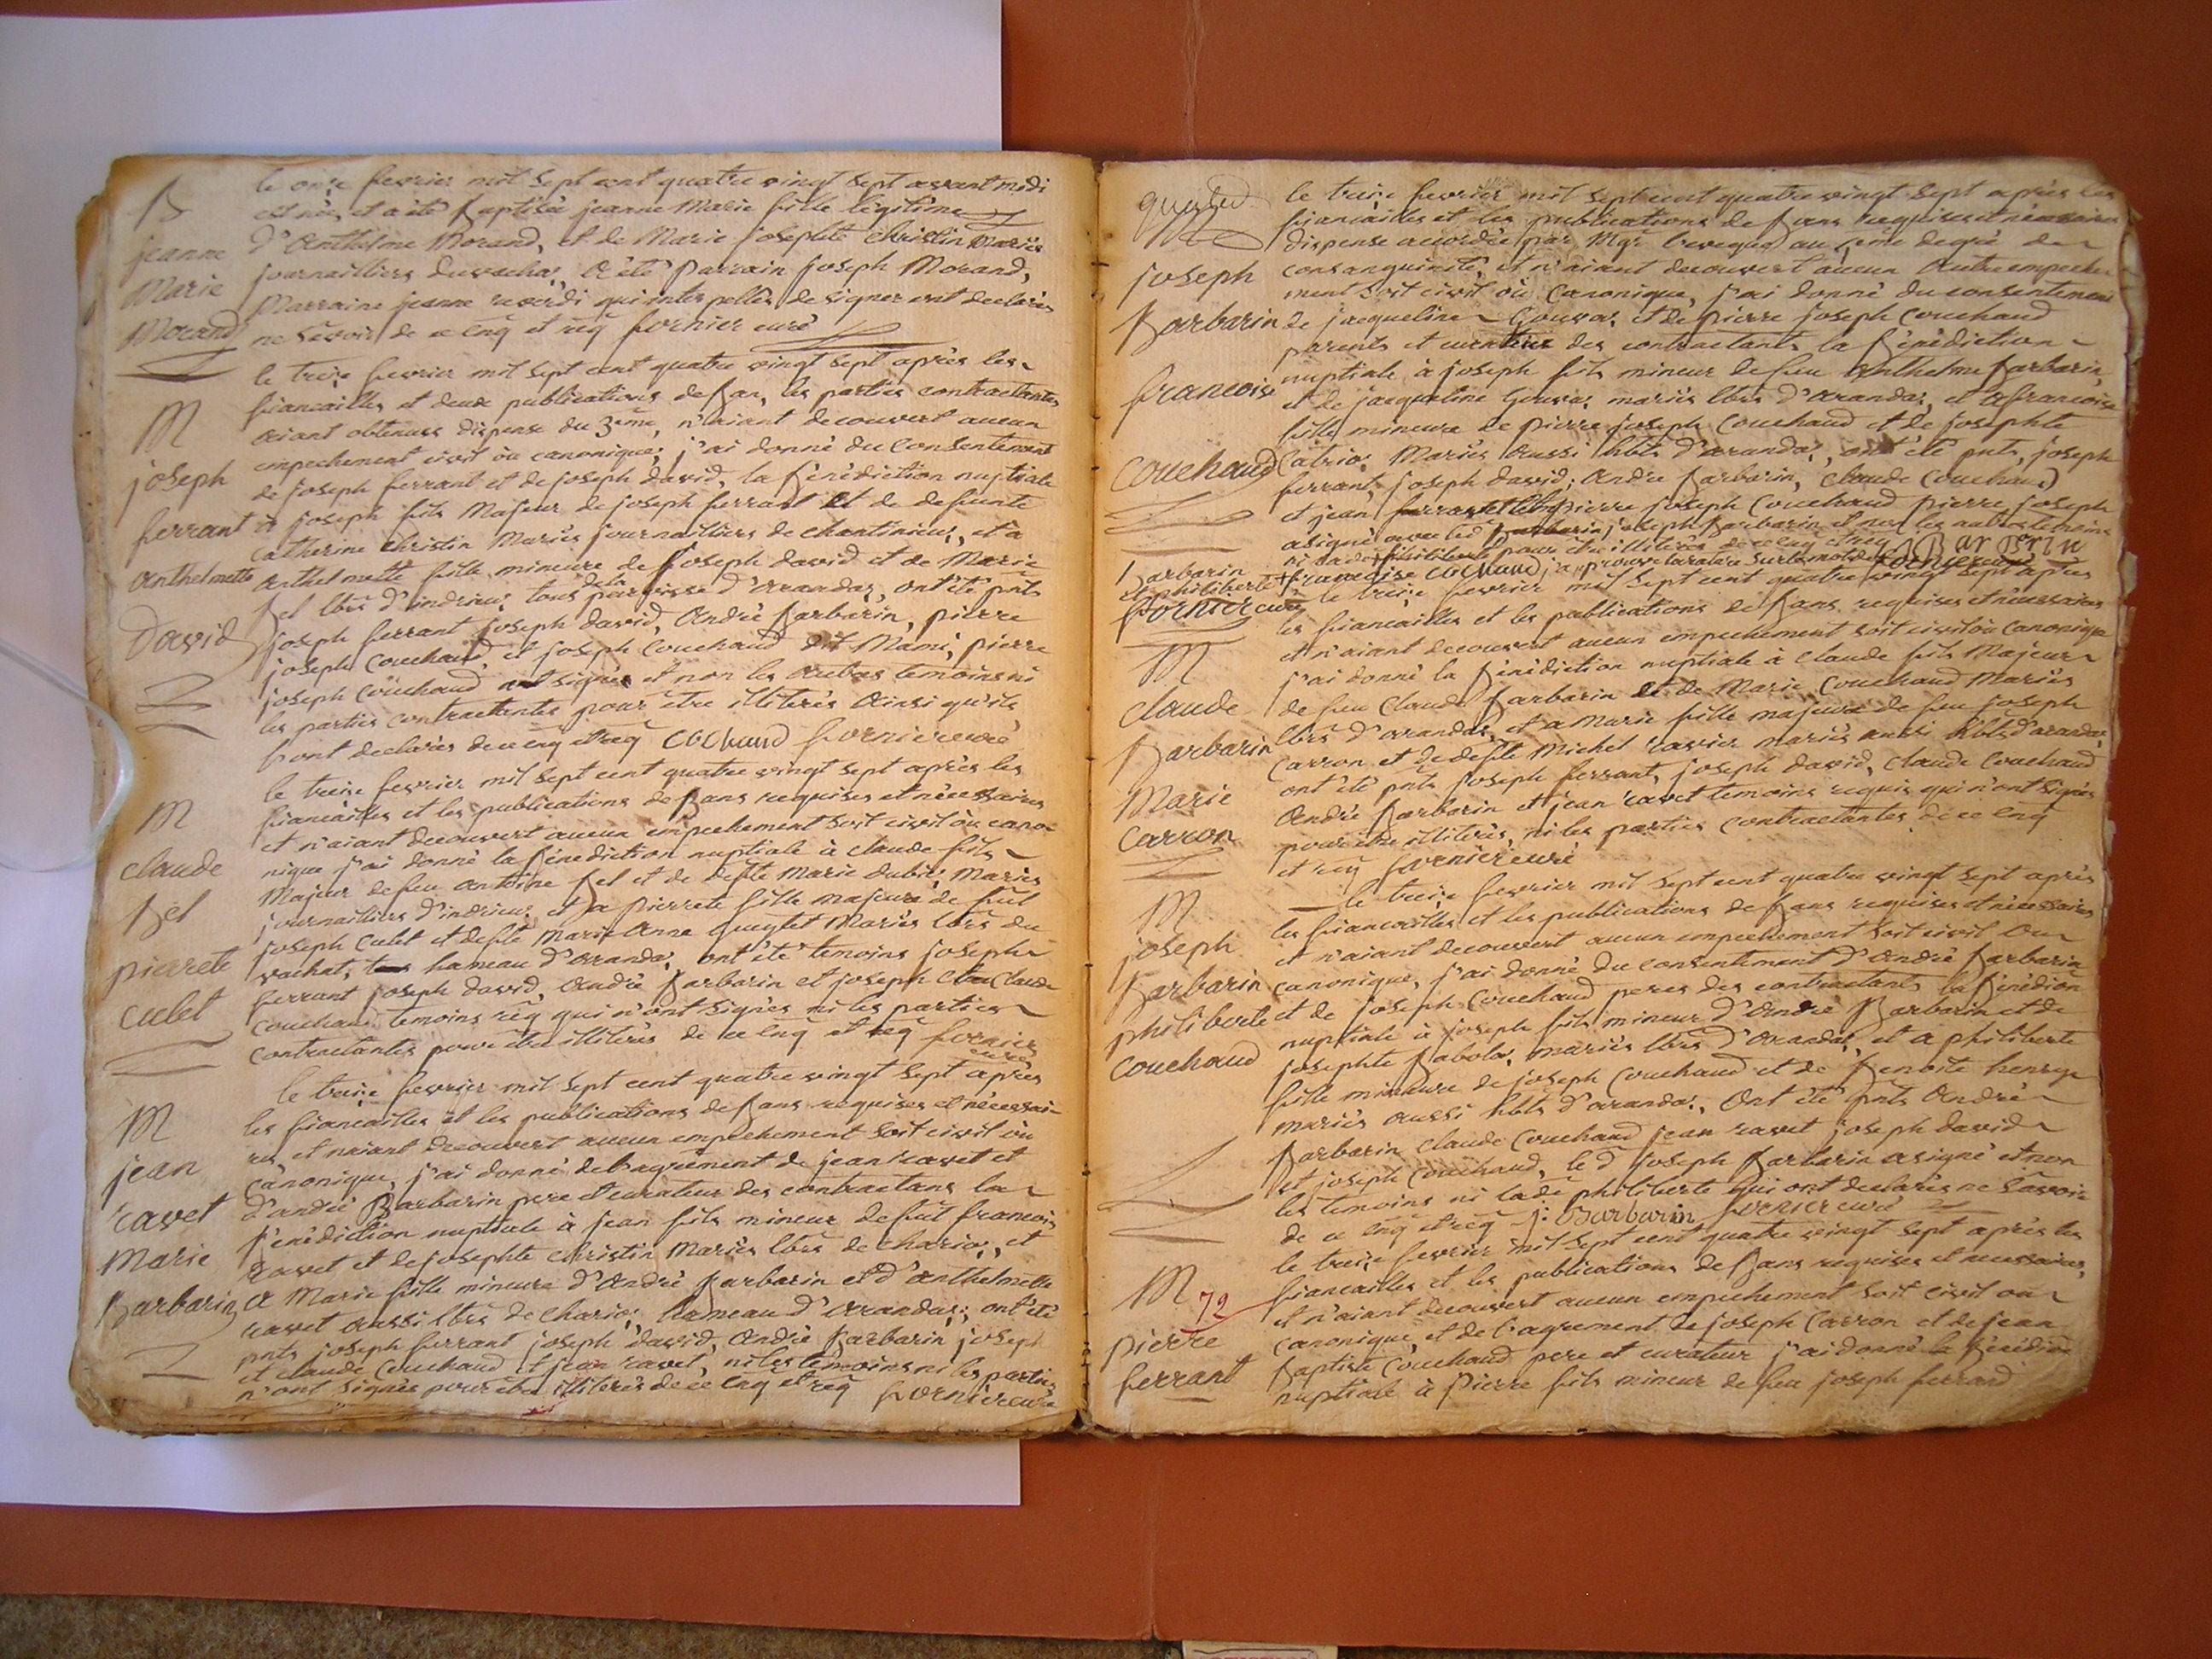 B
jeanne
Marie
Morand
le onze fevrier mil sept cent quatre vingt sept avant midi
est née, et a été Baptisée jeanne Marie fille légitime
d'Anthelme Morand, et de Marie josephte christin Mariés
journailliers du vacha; A été Parrain joseph Morand,
Marraine jeanne raverdi qui interpellés de signer ont declarés
ne scavoir de ce enq et req fornier curé
M
joseph
ferrant
anthelmette
David
le treize fevrier mil sept cent quatre vingt sept après les
fiancailles et deux publications de Ban, les parties contractantes
aiant obtenues dispense du 3eme, n'aiant decouvert aucun
empechement civil où canonique; j'ai donné du Consentement
de joseph ferrant et de joseph david, la Bénédiction nuptiale
à joseph fils Majeur de joseph ferrant et de defunte
catherine christin Mariés journailliers de chantinieu;, et à
Anthelmette fille mineure de joseph david et de Marie
Bel lbrs d'indrieu; tous de la paroisse d'arandas, ont été pnts
joseph ferrant joseph david, André Barbarin, pierre
joseph Couchaud, et joseph Couchaud dit Mami, pierre
joseph Couchaud ont signés et non les Autres temoins ni
les parties contractantes pour être illiterés Ainsi qu'ils
l'ont declarés de ce enq et req CoChaud fornier curé
M
claude
Bel
pierrete
culet
le treize fevrier mil sept cent quatre vingt sept après les
fiancailles et les publications de Bans requises et nécessaires
et n'aiant decouvert aucun empechement soit civil où cano-
nique j'ai donné la Bénédiction nuptiale à claude fils
Majeur de feu antoine Bel et de defte Marie dubie; Mariés
journailliers d'indrieu; et a pierrete fille majeure de feu
joseph Culet et defte Marie Anne Gueylet Mariés lbrs du
vachat, hameau d'aranda; ont été temoins joseph
ferrant joseph david, André Barbarin et joseph Claude
Couchaud temoins req qui n'ont signés ni les parties
Contractantes pour être illiterés de ce enq et req fornier
curé
M
jean
ravet
Marie
Barbarin
le treize fevrier mil sept cent quatre vingt sept après
les fiancailles et les publications de Bans requises et nécessai-
res, et n'aiant decouvert aucun empechement soit civil où
canonique, j'ai donné de l'agrément de jean ravet et
d'andré Barbarin pere et curateur des contractans la
Bénédiction nuptiale à jean fils mineur de feu francois
ravet et de josephte christin Mariés lbrs de chario;, et
a Marie fille mineure d'André Barbarin et d'Anthelmette
ravet aussi lbrs de chario;, hameau d'Arandas; ont été
pnts joseph ferrant joseph david, André Barbarin joseph
et claude Couchaud et jean ravet, ni les temoins ni les parties
n'ont signés pour être illiterés de ce enq et req fornier curé
M
joseph
Barbarin
francoise
Couchaud
le treize fevrier mil sept cent quatre vingt sept après les
fiancailles et les publications de Bans requises et nécessaires
dispense accordée par Mgr l'eveque au degré de
consanguinité, et n'aiant decouvert aucun Autre empeche
ment soit civil où Canonique, j'ai donné du consentement
de jacqueline Gouva; et de pierre joseph Couchaud
parents et curateur des contractants la Bénédiction
nuptiale à joseph fils mineur de feu Anthelme Barbarin,
et de jacqueline Gouva; mariés lbrs d'aranda;, et a francoise
fille mineure de pierre joseph Couchaud et de josephte
Mariés aussi hbts d'aranda;, ont été pnts, joseph
ferrant, joseph david; André Barbarin, claude Couchaud
et jean pierre joseph Couchaud pierre joseph
a signé avec led joseph Barbarin et non les autres temoins
ni pour être illiterés de ce enq et req J Bar Brin
Barbarin
et philiberte + francoise CoChaud, j'approuve la rature sur le mot de fornier curé
fornier curé
M
claude
Barbarin
Marie
Carron
le treize fevrier mil sept cent quatre vingt sept après
les fiancailles et les publications de Bans requises et nécessaires
et n'aiant decouvert aucun empechement soit civil où Canonique
j'ai donné la Bénédiction nuptiale à claude fils Majeur
de feu Claude Barbarin et de Marie Couchaud Mariés
lbrs d'aranda;, et a Marie fille majeure de feu joseph
Carron et de defte Michel ravier mariés aussi hbts d'aranda;
ont été pnts joseph ferrant, joseph david, Claude Couchaud
André Barbarin et jean ravet temoins requis qui n'ont signés
pour être illiterés, ni les parties Contractantes de ce enq
et req fornier curé
M
joseph
Barbarin
philiberte
Couchaud
le treize fevrier mil sept cent quatre vingt sept après
les fiancailles et les publications de Bans requises et nécessaires
et n'aiant decouvert aucun empechement soit civil ou
canonique, j'ai donné du consentement d'André Barbarin
et de joseph Couchaud peres des contractants la Bénédion
nuptiale à joseph fils mineur d'André Barbarin et de
josephte Babola; mariés lbrs d'Aranda;, et a philiberte
fille mineure de joseph Couchaud et de Benoite henry
mariés aussi hbts d'aranda;, Ont été pnts André
Barbarin claude Couchaud jean ravet joseph david
et joseph Couchaud, le d joseph Barbarin a signé et non
les temoins ni lade philiberte qui ont declarés ne Sçavoir
de ce enq et req j. Barbarin fornier curé
M 72
pierre
ferrant
le treize fevrier mil sept cent quatre vingt sept après les
fiancailles et les publications de Bans requises et necessaires,
et n'aiant decouvert aucun empechement soit civil ou
canonique, et de l'agrement de joseph Carron et de jean
Baptiste Couchaud pere et curateur j'ai donné la Bénédion
nuptiale à Pierre fils mineur de feu joseph ferrand